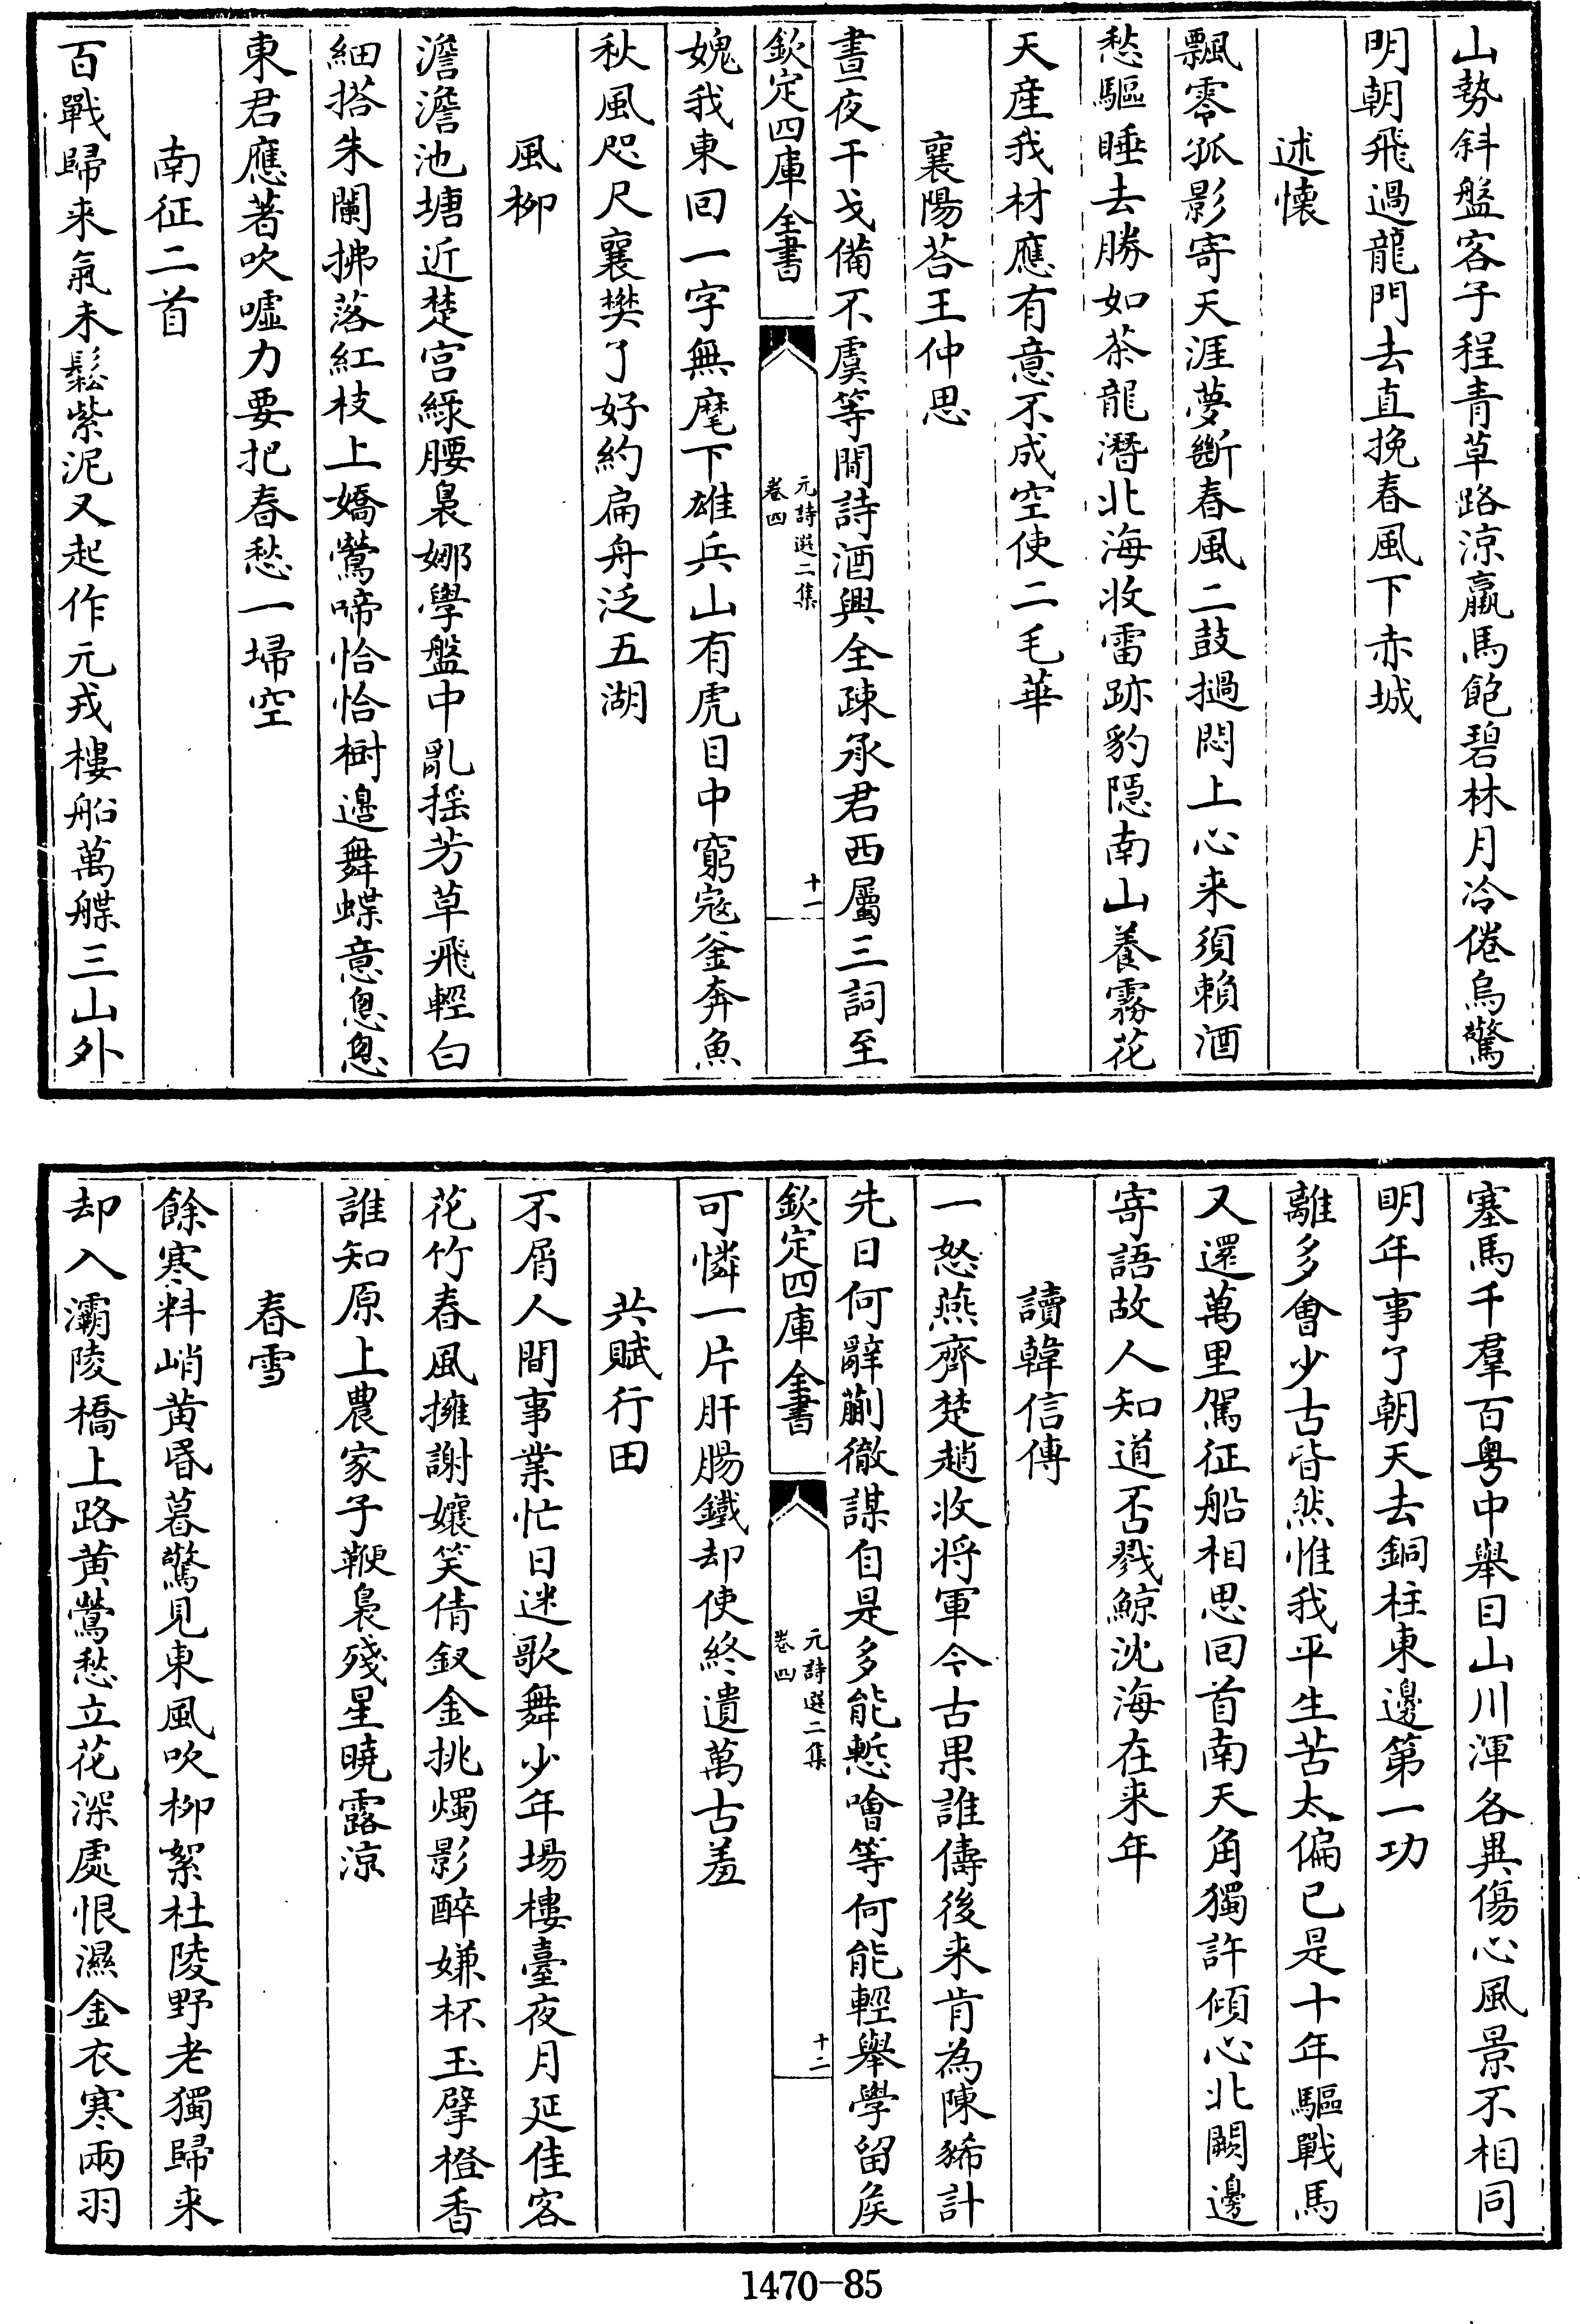 山勢斜盤客子程青草路涼羸馬飽碧林月冷倦烏驚
明朝飛過龍門去直挽春風下赤城
述懷
飄零孤影寄天涯夢斷春風二鼓撾悶上心来須賴酒
愁驅睡去勝如茶龍潛北海收雷跡豹隱南山養霧花
天産我材應有意不成空使二毛華
襄陽荅王仲思
晝夜干戈備不虞等閒詩酒興全疎承君西屬三詞至
欽定四庫全書
元詩選二集
卷四
十一
媿我東回一字無麾下雄兵山有虎目中窮寇釜奔魚
秋風咫尺襄樊了好約扁舟泛五湖
風柳
澹澹池塘近楚宫緑腰裊娜學盤中亂揺芳草飛輕白
細搭朱闌拂落紅枝上嬌鶯啼恰恰樹邉舞蝶意怱怱
東君應著吹噓力要把春愁一埽空
南征二首
百戰歸来氣未鬆紫泥又起作元戎樓船萬艓三山外
塞馬千羣百粤中舉目山川渾各異傷心風景不相同
明年事了朝天去銅柱東邊第一功
離多會少古皆然惟我平生苦太偏已是十年驅戰馬
又還萬里駕征船相思回首南天角獨許傾心北闕邊
寄語故人知道否戮鯨沈海在来年
讀韓信傳
一怒燕齊楚趙收将軍今古果誰儔後来肯為陳豨計
先日何辭蒯徹謀自是多能慙噲等何能輕舉學留矦
欽定四庫全書
元詩選二集
卷四
十二
可憐一片肝腸鐵却使終遺萬古羞
共賦行田
不屑人間事業忙日迷歌舞少年場樓臺夜月延佳客
花竹春風擁謝孃笑倩釵金挑燭影醉嫌杯玉擘橙香
誰知原上農家子鞭裊殘星曉露涼
春雪
餘寒料峭黄昏暮驚見東風吹柳絮杜陵野老獨歸来
却入灞陵橋上路黄鶯愁立花深處恨濕金衣寒兩羽
1470-85